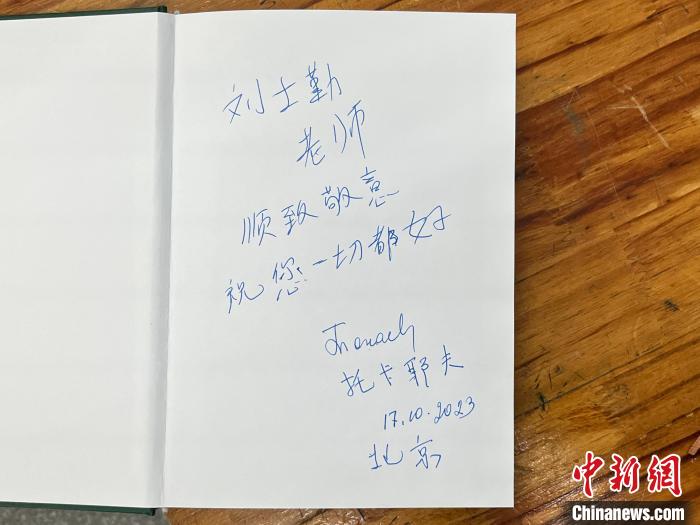 刘士勤
老师
顺致敬意
祝您一切都好
托卡耶夫
17.10.2023
北京
中新网
Chinanews.com